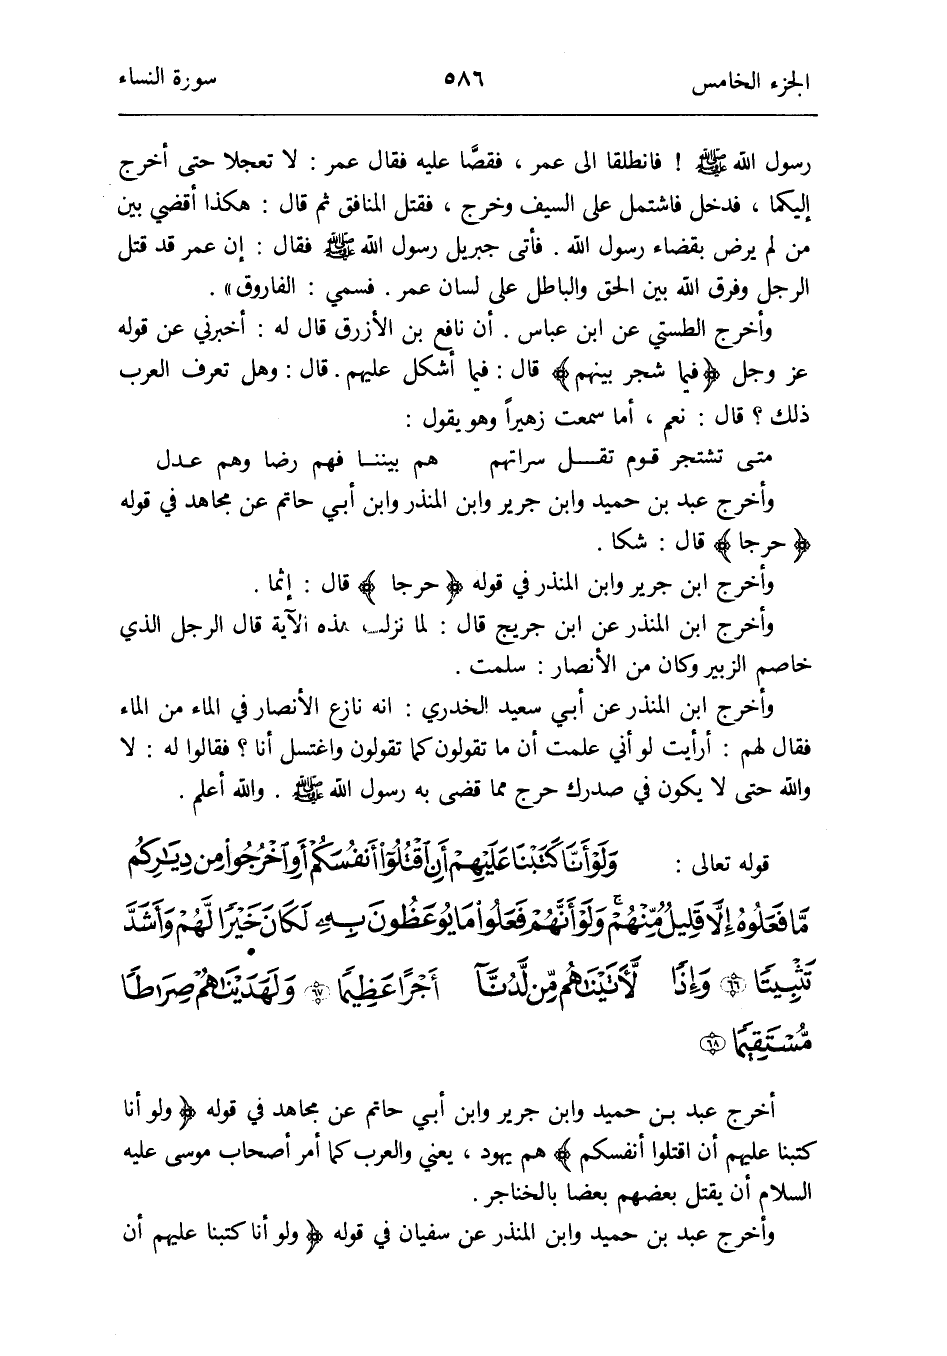 الجزء الخامس ٥٨٦ سورة النساء
رسول الله ﷺ ! فانطلقا الى عمر ، فقصَّا عليه فقال عمر : لا تعجلا حتى أخرج
إليكما ، فدخل فاشتمل على السيف وخرج ، فقتل المنافق ثم قال : هكذا أقضي بين
من لم يرض بقضاء رسول الله . فأتى جبريل رسول الله ﷺ فقال : إن عمر قد قتل
الرجل وفرق الله بين الحق والباطل على لسان عمر . فسمي : الفاروق» .
وأخرج الطستي عن ابن عباس . أن نافع بن الأزرق قال له : أخبرني عن قوله
عز وجل ﴿فيما شجر بينهم﴾ قال : فيما أشكل عليهم . قال : وهل تعرف العرب
ذلك ؟ قال : نعم ، أما سمعت زهيراً وهو يقول :
متى تشتجر قوم تقل سراتهم هم بيننا فهم رضا وهم عدل
وأخرج عبد بن حميد وابن جرير وابن المنذر وابن أبي حاتم عن مجاهد في قوله
﴿ حرجا ﴾ قال : شكا .
وأخرج ابن جرير وابن المنذر في قوله ﴿ حرجا ﴾ قال : إثما .
وأخرج ابن المنذر عن ابن جريج قال : لما نزلت هذه الآية قال الرجل الذي
خاصم الزبير وكان من الأنصار : سلمت .
وأخرج ابن المنذر عن أبي سعيد الخدري : انه نازع الأنصار في الماء من الماء
فقال لهم : أرأيت لو أني علمت أن ما تقولون كما تقولون واغتسل أنا ؟ فقالوا له : لا
والله حتى لا يكون في صدرك حرج مما قضى به رسول الله ﷺ . والله أعلم .
قوله تعالى : وَلَوْ أَنَّا كَتَبْنَا عَلَيْهِمْ أَنِ ٱقْتُلُوٓا۟ أَنفُسَكُمْ أَوِ ٱخْرُجُوا۟ مِن دِيَـٰرِكُم
مَّا فَعَلُوهُ إِلَّا قَلِيلٌ مِّنْهُمْ ۖ وَلَوْ أَنَّهُمْ فَعَلُوا۟ مَا يُوعَظُونَ بِهِۦ لَكَانَ خَيْرًا لَّهُمْ وَأَشَدَّ
تَثْبِيتًا ٦٦ وَإِذًا لَّأَتَيْنَـٰهُم مِّن لَّدُنَّآ أَجْرًا عَظِيمًا ٦٧ وَلَهَدَيْنَـٰهُمْ صِرَٰطًا
مُّسْتَقِيمًا ٦٨
أخرج عبد بن حميد وابن جرير وابن أبي حاتم عن مجاهد في قوله ﴿ ولو أنا
كتبنا عليهم أن اقتلوا أنفسكم ﴾ هم يهود ، يعني والعرب كما أمر أصحاب موسى عليه
السلام أن يقتل بعضهم بعضا بالخناجر .
وأخرج عبد بن حميد وابن المنذر عن سفيان في قوله ﴿ ولو أنا كتبنا عليهم أن